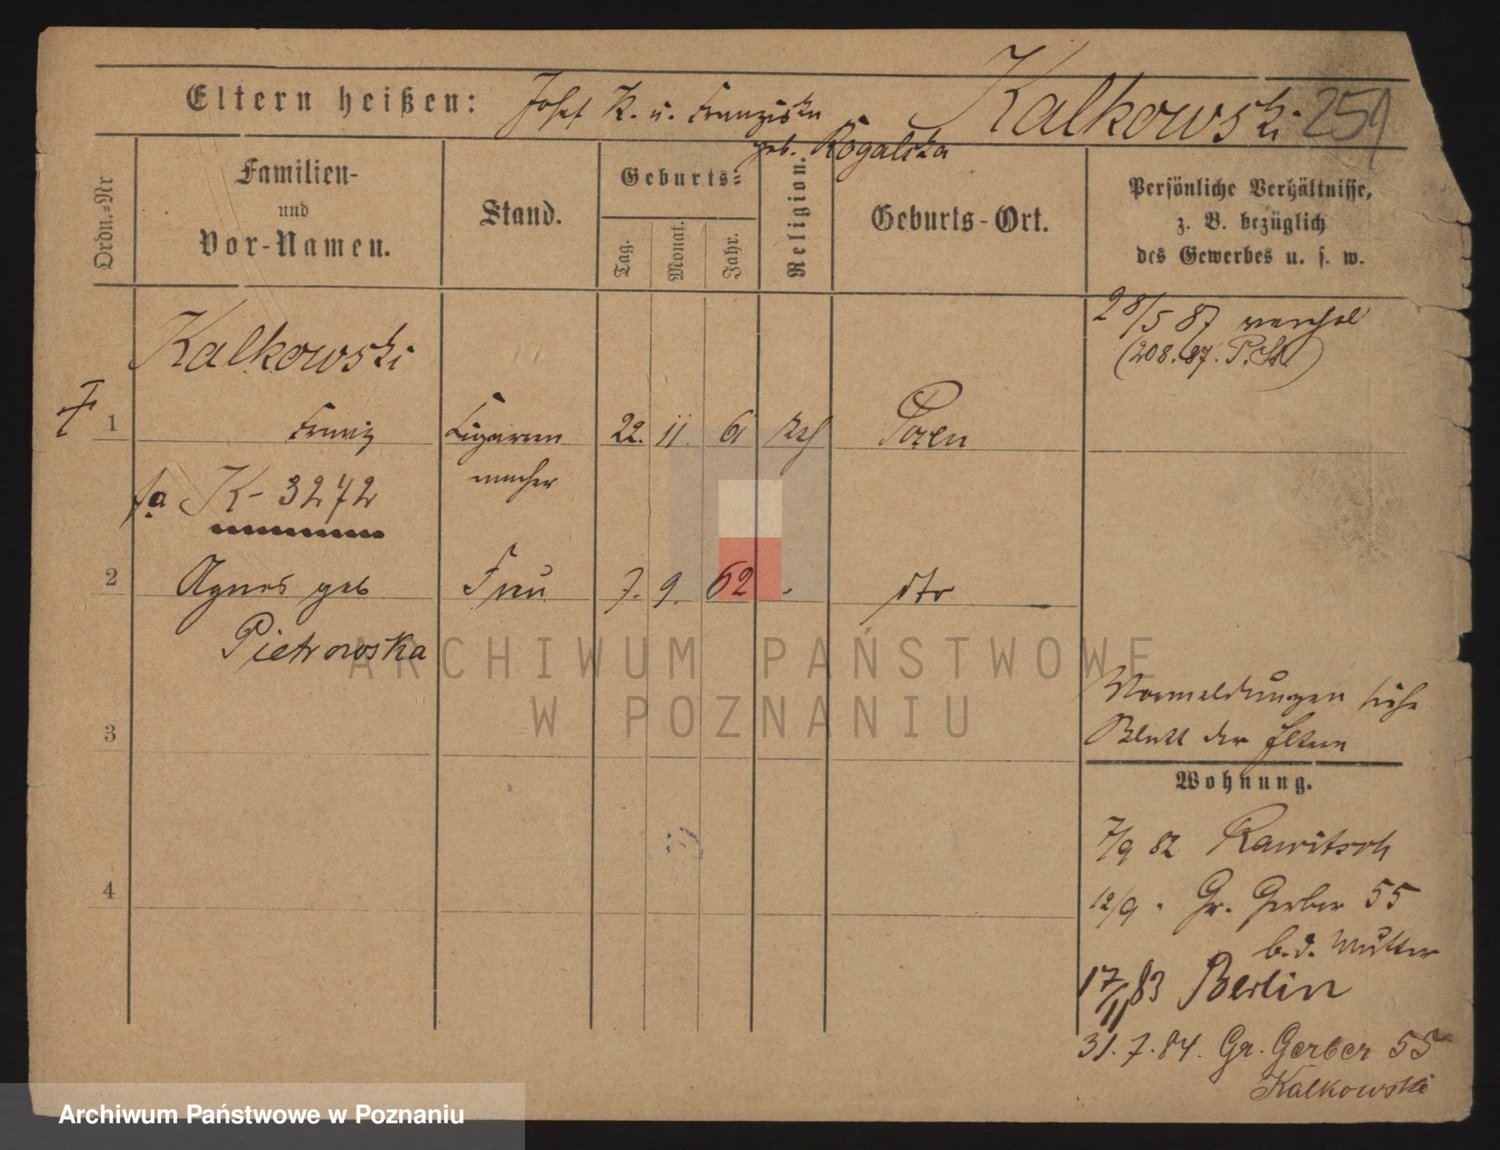 Eltern heißen: Josef K. u. Franziska Kalkowski 251
geb. Rogalska
Ordn.-Nr
Familien-
und
Vor-Namen.
Stand.
Geburts-
Tag.
Monat.
Jahr.
Religion.
Geburts-Ort.
Persönliche Verhältnisse,
z. B. bezüglich
des Gewerbes u. s. w.
28/5 87 verehel
(208.87. P.St.)
Kalkowski
1 Franz Cigarren 22. 11. 61 kth Posen
macher
fa K-3272
2 Agnes geb Frau 7. 9. 62 dto
Pietrowska
ARCHIWUM PAŃSTWOWE
W POZNANIU
Vormeldungen siehe
Blatt der Eltern
3
Wohnung.
7/9 82 Rawitsch
4
12/9 Gr. Gerber 55
b. d. Mutter
17/11 83 Berlin
31.7.84. Gr. Gerber 55
Kalkowski
Archiwum Państwowe w Poznaniu